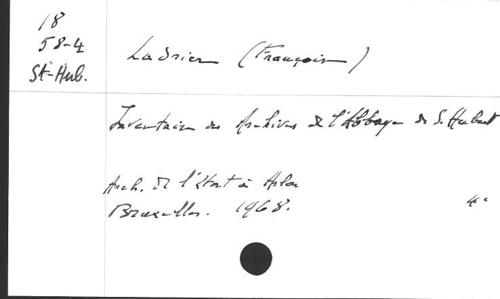 18
58-4
St-Hub.
Ladrier (François)
Inventaire des Archives de l'Abbaye de S. Hubert
Arch. de l'état à Arlon
Bruxelles. 1968.
4°